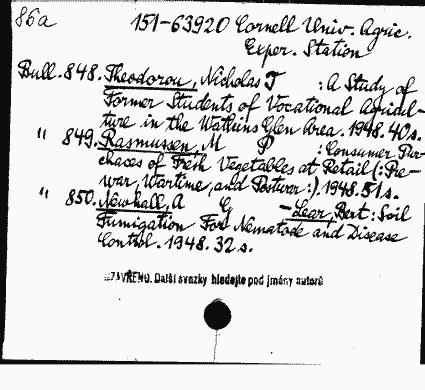 86a 151-63920 Cornell Univ. Agric.
Exper. Station
Bull. 848. Theodorou, Nicholas T : A Study of
Former Students of Vocational Agricul-
ture in the Watkins Glen Area. 1948. 40 s.
" 849. Rasmussen, M P : Consumer Pur-
chases of Fresh Vegetables at Retail (: Pre-
war, Wartime, and Postwar :). 1948. 51 s.
" 850. Newhall, A G - Lear, Bert : Soil
Fumigation For Nematode and Disease
Control. 1948. 32 s.
UZAVŘENO. Další svazky hledejte pod jmény autorů